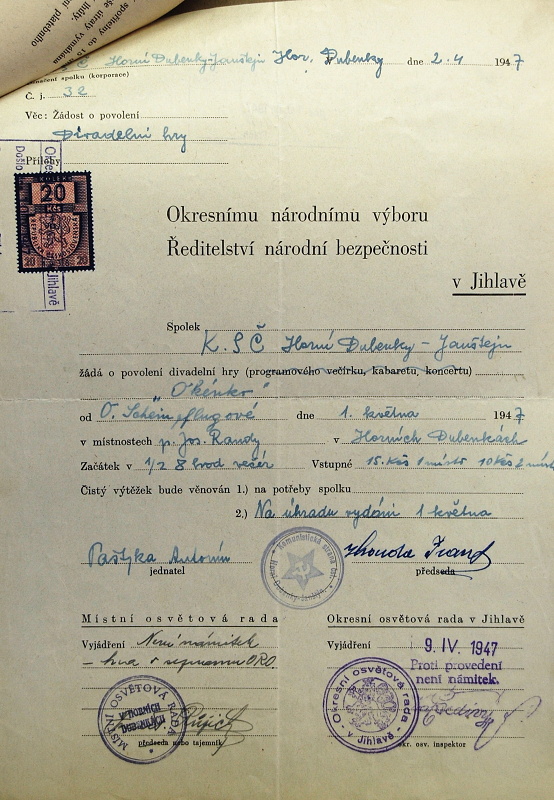 spořitelny do 15
lhůty.
se útraty vymáhán
ní platebního
KSČ Horní Dubenky-Janštejn Hor. Dubenky dne 2.4 1947
označení spolku (korporace)
Č. j. 32
Věc: Žádost o povolení
Divadelní hry
Přílohy
KOLEK
20
KČS
REPUBLIKA ČESKOSLOVENSKÁ
20 20
Jihlavě
Došlo
Okresnímu národnímu výboru
Ředitelství národní bezpečnosti
v Jihlavě
Spolek
K.S.Č Horní Dubenky - Janštejn
žádá o povolení divadelní hry (programového večírku, kabaretu, koncertu)
„Okénko"
od O. Scheinpflugové dne 1. května 1947
v místnostech p. Jos. Randy v Horních Dubenkách
Začátek v 1/2 8 hod večer Vstupné 15 Kčs 1 místo 10 Kčs 2 místo
Čistý výtěžek bude věnován 1.) na potřeby spolku
2.) Na úhradu vydání 1 května
Komunistická strana
Horní Dubenky-Janštejn
Antonín
jednatel
předseda
Místní osvětová rada
Vyjádření Není námitek
- hra v seznamu ORO
MÍSTNÍ OSVĚTOVÁ RADA
v Horních
Dubenkách
předseda nebo tajemník
Okresní osvětová rada v Jihlavě
Vyjádření 9. IV. 1947
Proti provedení
není námitek.
Okresní osvětová rada
v Jihlavě
okr. osv. inspektor